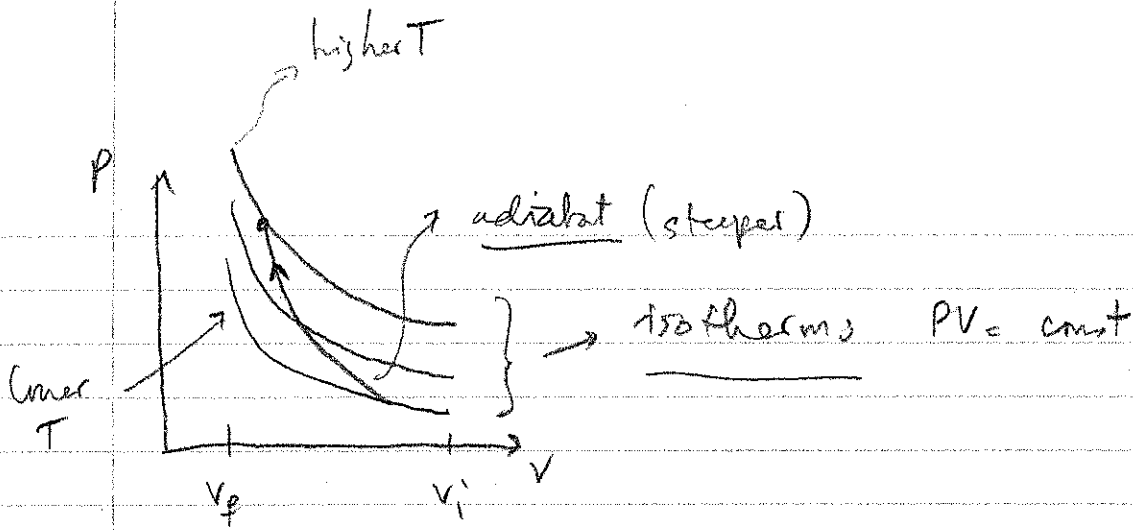 higher T
P
adiabat (steeper)
isotherms PV = const
lower
T
V
V_f V_i